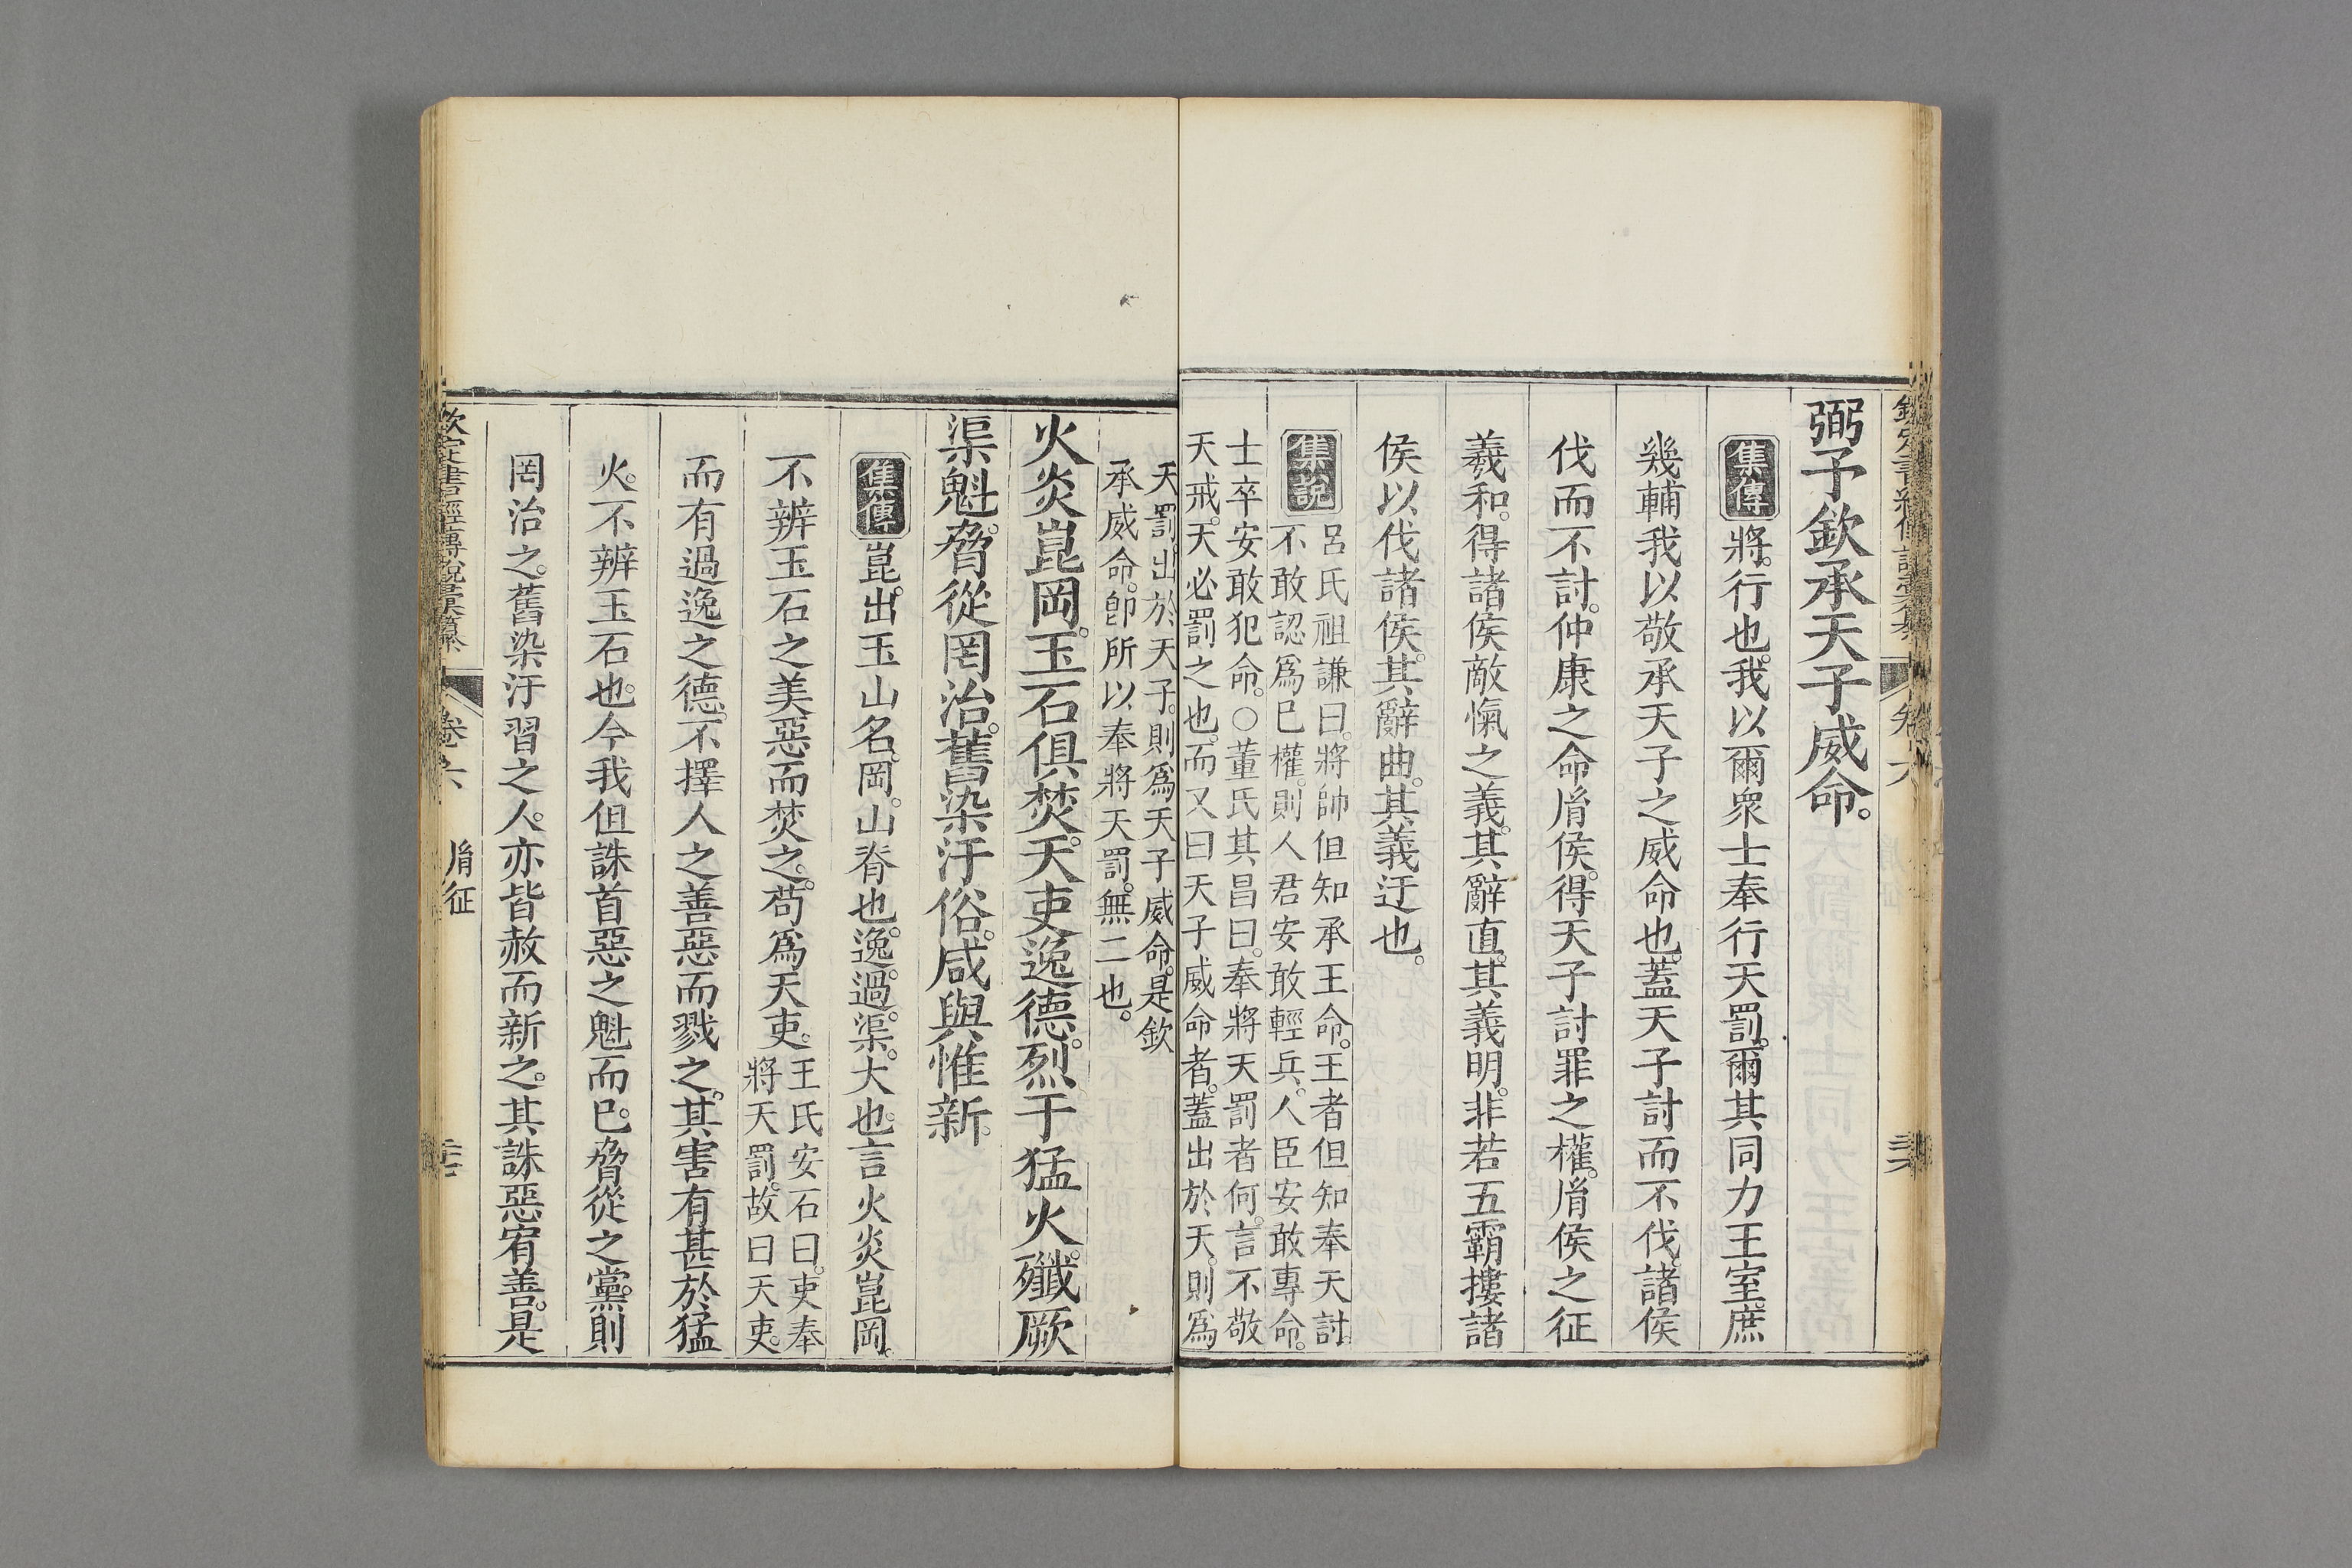 弼予欽承天子威命。
集傳 將。行也。我以爾衆士奉行天罰。爾其同力王室。庶
幾輔我以敬承天子之威命也。蓋天子討而不伐。諸侯
伐而不討。仲康之命胤侯。得天子討罪之權。胤侯之征
羲和。得諸侯敵愾之義。其辭直。其義明。非若五霸摟諸
侯以伐諸侯。其辭曲。其義迂也。
集說
呂氏祖謙曰。將帥但知承王命。王者但知奉天討。
不敢認爲已權。則人君安敢輕兵。人臣安敢專命。
士卒安敢犯命。○董氏其昌曰。奉將天罰者何。言不敬
天戒。天必罰之也。而又曰天子威命者。蓋出於天。則爲
天罰。出於天子。則爲天子威命。是欽
承威命。卽所以奉將天罰。無二也。
火炎崑岡。玉石俱焚。天吏逸德。烈于猛火。殲厥
渠魁。脅從罔治。舊染汙俗。咸與惟新。
集傳 崑。出玉山名。岡。山脊也。逸。過。渠。大也。言火炎崑岡。
不辨玉石之美惡而焚之。苟爲天吏。
王氏安石曰。吏奉
將天罰。故曰天吏。
而有過逸之德。不擇人之善惡而戮之。其害有甚於猛
火。不辨玉石也。今我但誅首惡之魁而已。脅從之黨。則
罔治之。舊染汙習之人。亦皆赦而新之。其誅惡宥善。是
欽定書經傳說彙纂
卷六
胤征